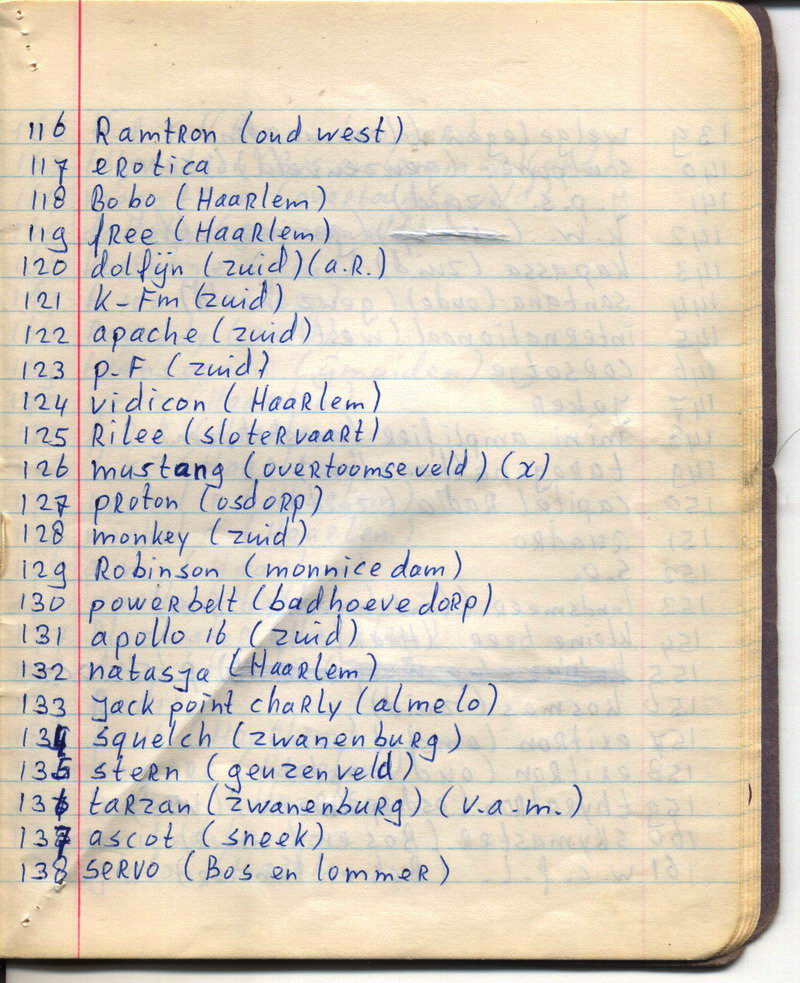 116 Ramtron (oud west)
117 eRotica
118 Bobo (HaaRlem)
119 fRee (HaaRlem)
120 dolfijn (zuid)(a.R.)
121 K-Fm (zuid)
122 apache (zuid)
123 p-F (zuid)
124 vidicon (HaaRlem)
125 Rilee (sloteRvaaRt)
126 mustang (oveRtoomse veld) (x)
127 pRoton (osdoRp)
128 monkey (zuid)
129 Robinson (monnicedam)
130 poweRbelt (badhoevedoRp)
131 apollo 16 (zuid)
132 natasja (HaaRlem)
133 jack point chaRly (almelo)
134 squelch (zwanenbuRg)
135 steRn (geuzenveld)
136 taRzan (zwanenbuRg) (v.a.m.)
137 ascot (sneek)
138 seRvo (Bos en lommeR)